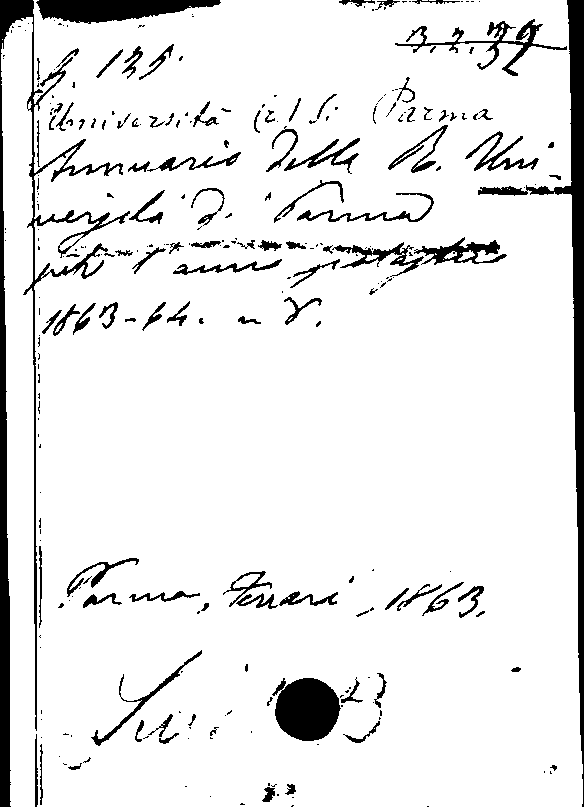 G. 125.
3.2.39
Università (r.) di Parma
Annuario della R. Uni-
versità di Parma
per l'anno scolastico
1863-64. u V.
Parma, Ferrari, 1863.